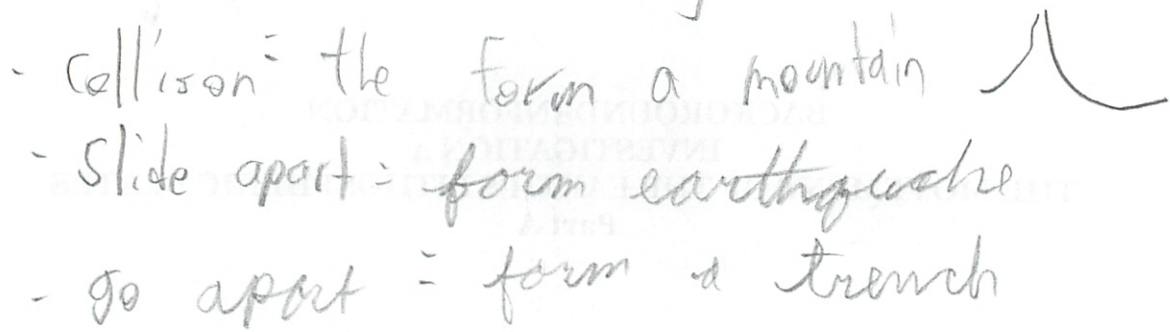 - Collison = the form a mountain
- Slide apart = form earthquake
- go apart = form a trench